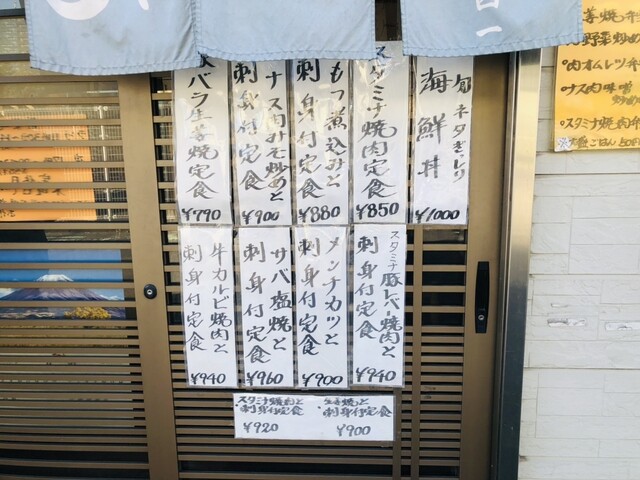 旬ネタぎっしり
海鮮丼
¥1000
スタミナ焼肉定食
¥850
もつ煮込みと
刺身付定食
¥880
ナス肉みそ炒めと
刺身付定食
¥900
豚バラ生姜焼定食
¥790
スタミナ豚レバー焼肉と
刺身付定食
¥940
メンチカツと
刺身付定食
¥900
サバ塩焼と
刺身付定食
¥960
牛カルビ焼肉と
刺身付定食
¥940
スタミナ焼肉と
刺身付定食
¥920
生姜焼と
刺身付定食
¥900
野菜炒め
肉オムレツ弁
ナス肉味噌
スタミナ焼肉弁